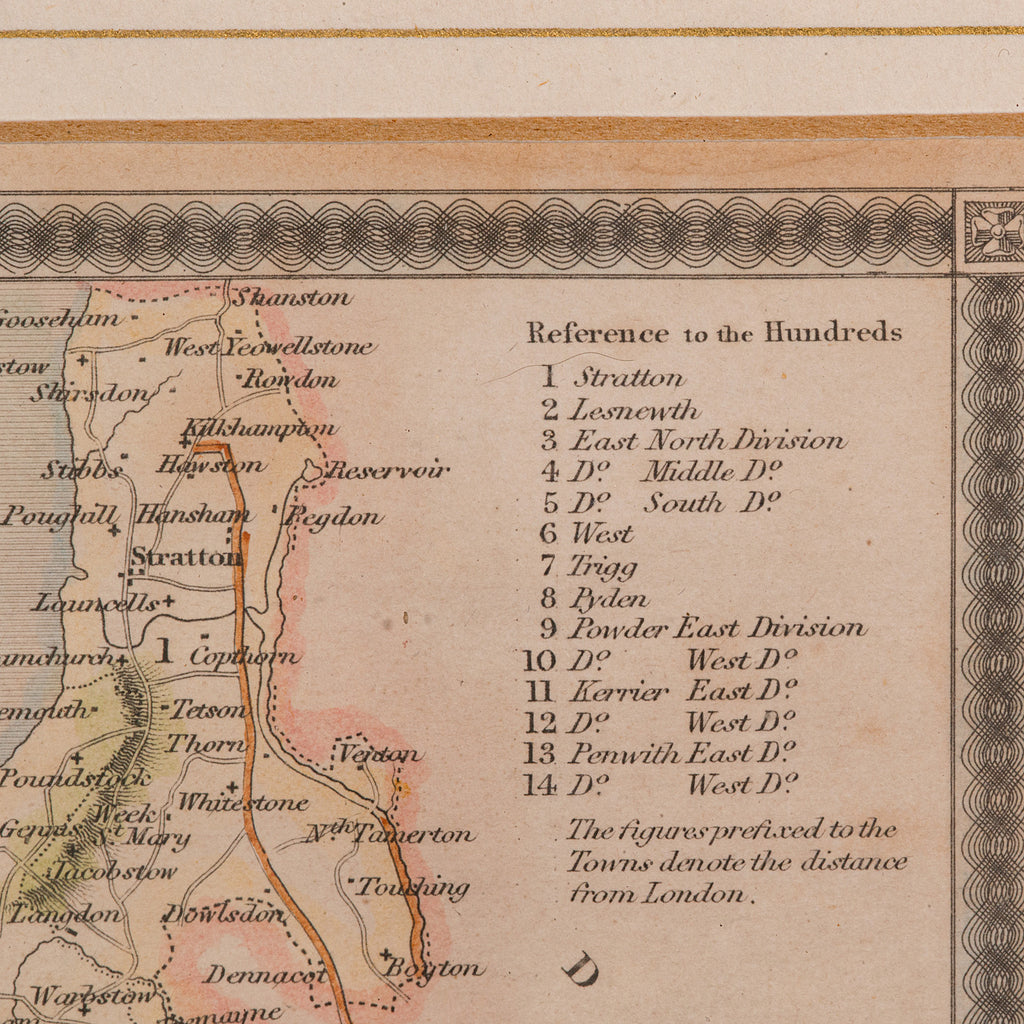 Shanston
Gooseham
West Yeowellstone
stow
Rowdon
Shirsdon
Kilkhampton
Stibbs
Hawston
Reservoir
Poughill
Hansham
Pegdon
Stratton
Launcells
1
Copthorn
Tetson
Thorn
Venton
Poundstock
Week
St Mary
Whitestone
Nth Tamerton
Jacobstow
Touching
Langdon
Dowlsdon
Dennacot
Boyton
Warbstow
Reference to the Hundreds
1 Stratton
2 Lesnewth
3 East North Division
4 Do. Middle Do.
5 Do. South Do.
6 West
7 Trigg
8 Pyden
9 Powder East Division
10 Do. West Do.
11 Kerrier East Do.
12 Do. West Do.
13 Penwith East Do.
14 Do. West Do.
The figures prefixed to the
Towns denote the distance
from London.
D